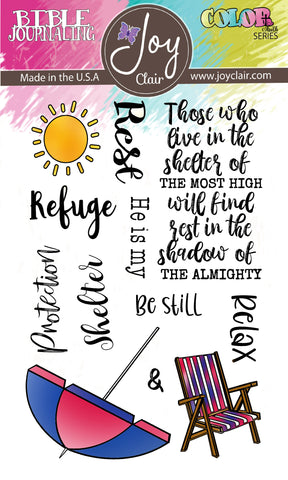 BIBLE
JOURNALING
Joy
Clair
COLOR
SERIES
Made in the U.S.A
www.joyclair.com
Rest
Those who
live in the
shelter of
THE MOST HIGH
will find
rest in the
shadow of
THE ALMIGHTY
Refuge
He is my
Protection
Shelter
Be still
Relax
&